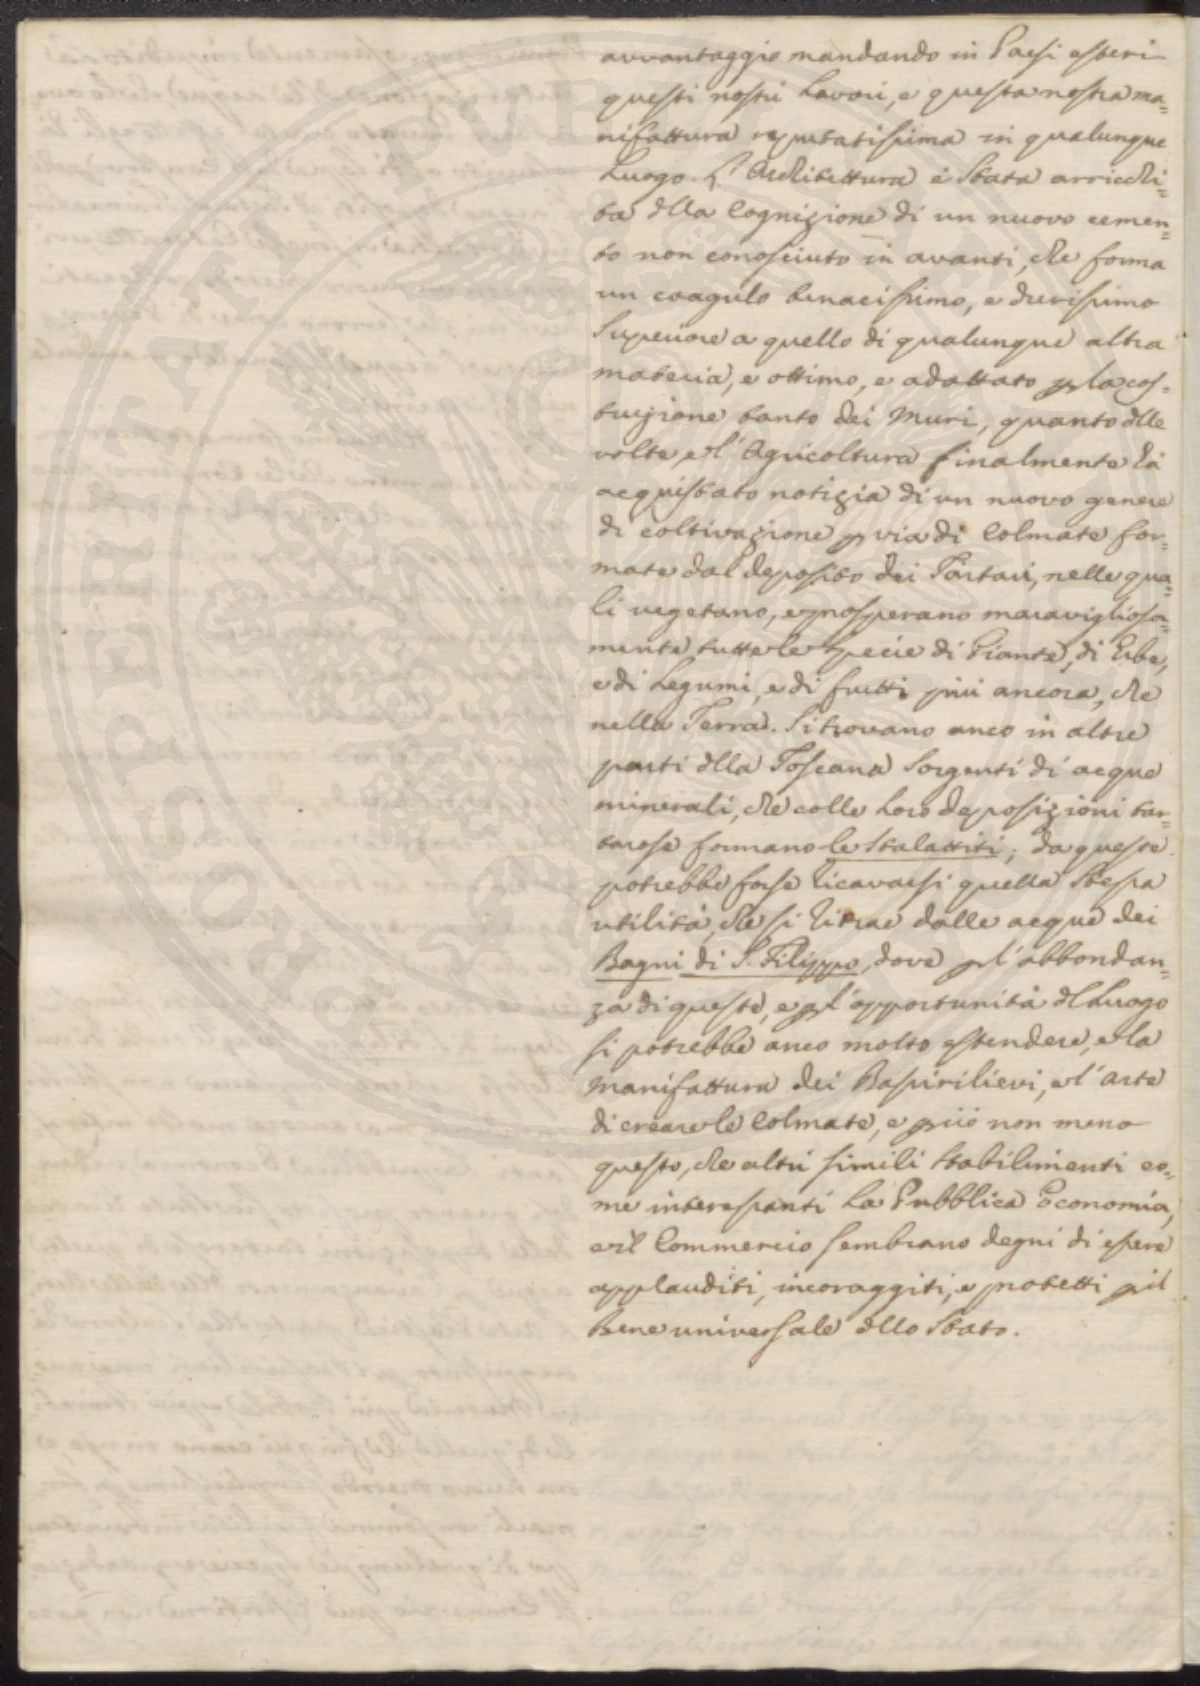 avvantaggio mandando in Paesi esteri
questi nostri Lavori, e questa nostra ma=
nifattura reputatissima in qualunque
Luogo. L'Architettura è stata arricchi=
ta dlla Cognizione di un nuovo cemen=
to non conosciuto in avanti, che forma
un coagulo tenacissimo, e durissimo
Superiore a quello di qualunque altra
materia, e ottimo, e adattato p la cos=
truzione tanto dei Muri, quanto dlle
volte, e l'Agricoltura finalmente hà
acquistato notizia di un nuovo genere
di coltivazione p via di Colmate for=
mate dal deposito dei Tartari, nelle qua=
li vegetano, e prosperano maravigliosa=
mente tutte le specie di Piante, di Erbe,
e di Legumi, e di frutti più ancora, che
nella Terra. Si trovano anco in altre
parti dlla Toscana Sorgenti di acque
minerali, che colle Loro deposizioni tar=
tarose formano le Stalattiti; da queste
potrebbe forse ricavarsi quella stessa
utilità, che si ritrae dalle acque dei
Bagni di S. Filippo, dove p l'abbondan=
za di queste, e p l'opportunità dl Luogo
si potrebbe anco molto estendere, e la
Manifattura dei Bassirilievi, e l'arte
di creare le Colmate, e p ciò non meno
questo, che altri simili Stabilimenti co=
me interessanti La Pubblica Economia,
e il Commercio sembrano degni di essere
applauditi, incoraggiti, e protetti p il
Bene universale dllo Stato.
PROSPERITATI PVBLI